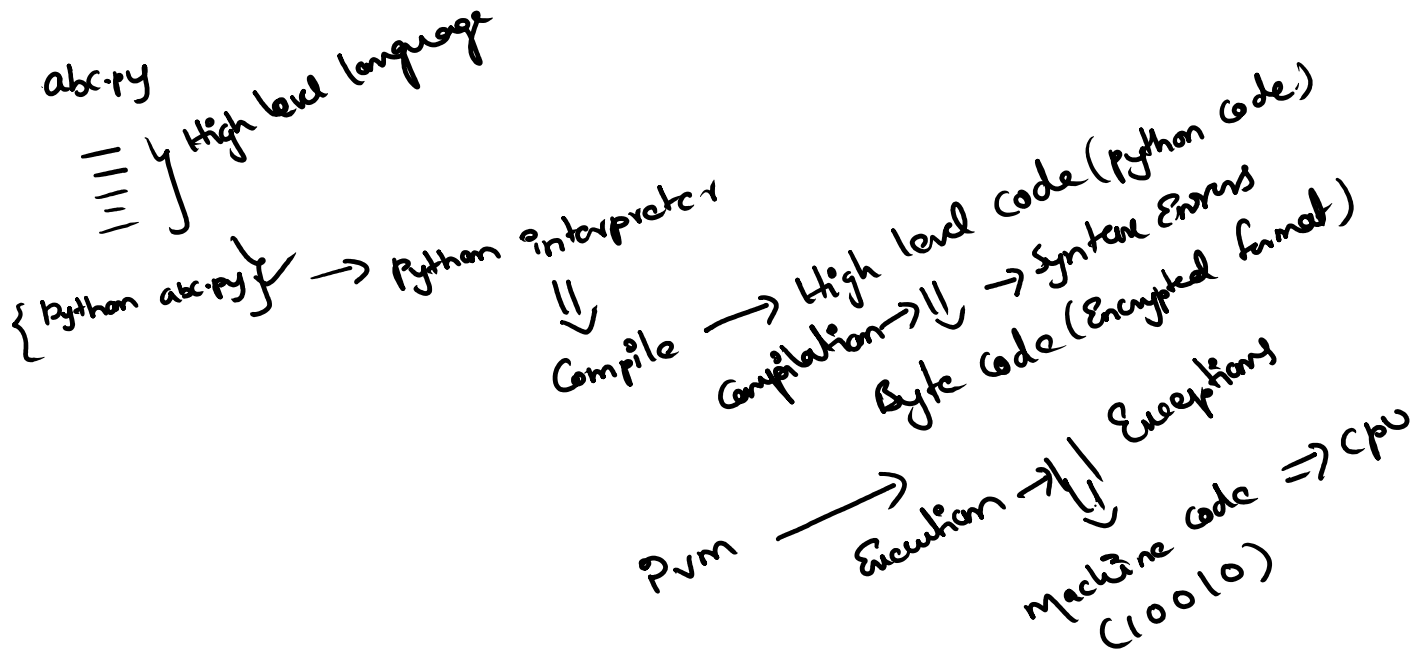 abc.py
High level language
{ Python abc.py } → Python interpreter
⇓
Compile → High level code (python code)
Compilation → ⇓ → Syntax Errors
Byte code (Encrypted format)
PVM → Execution → ⇓ Exceptions
Machine code ⇒ CPU
(10010)